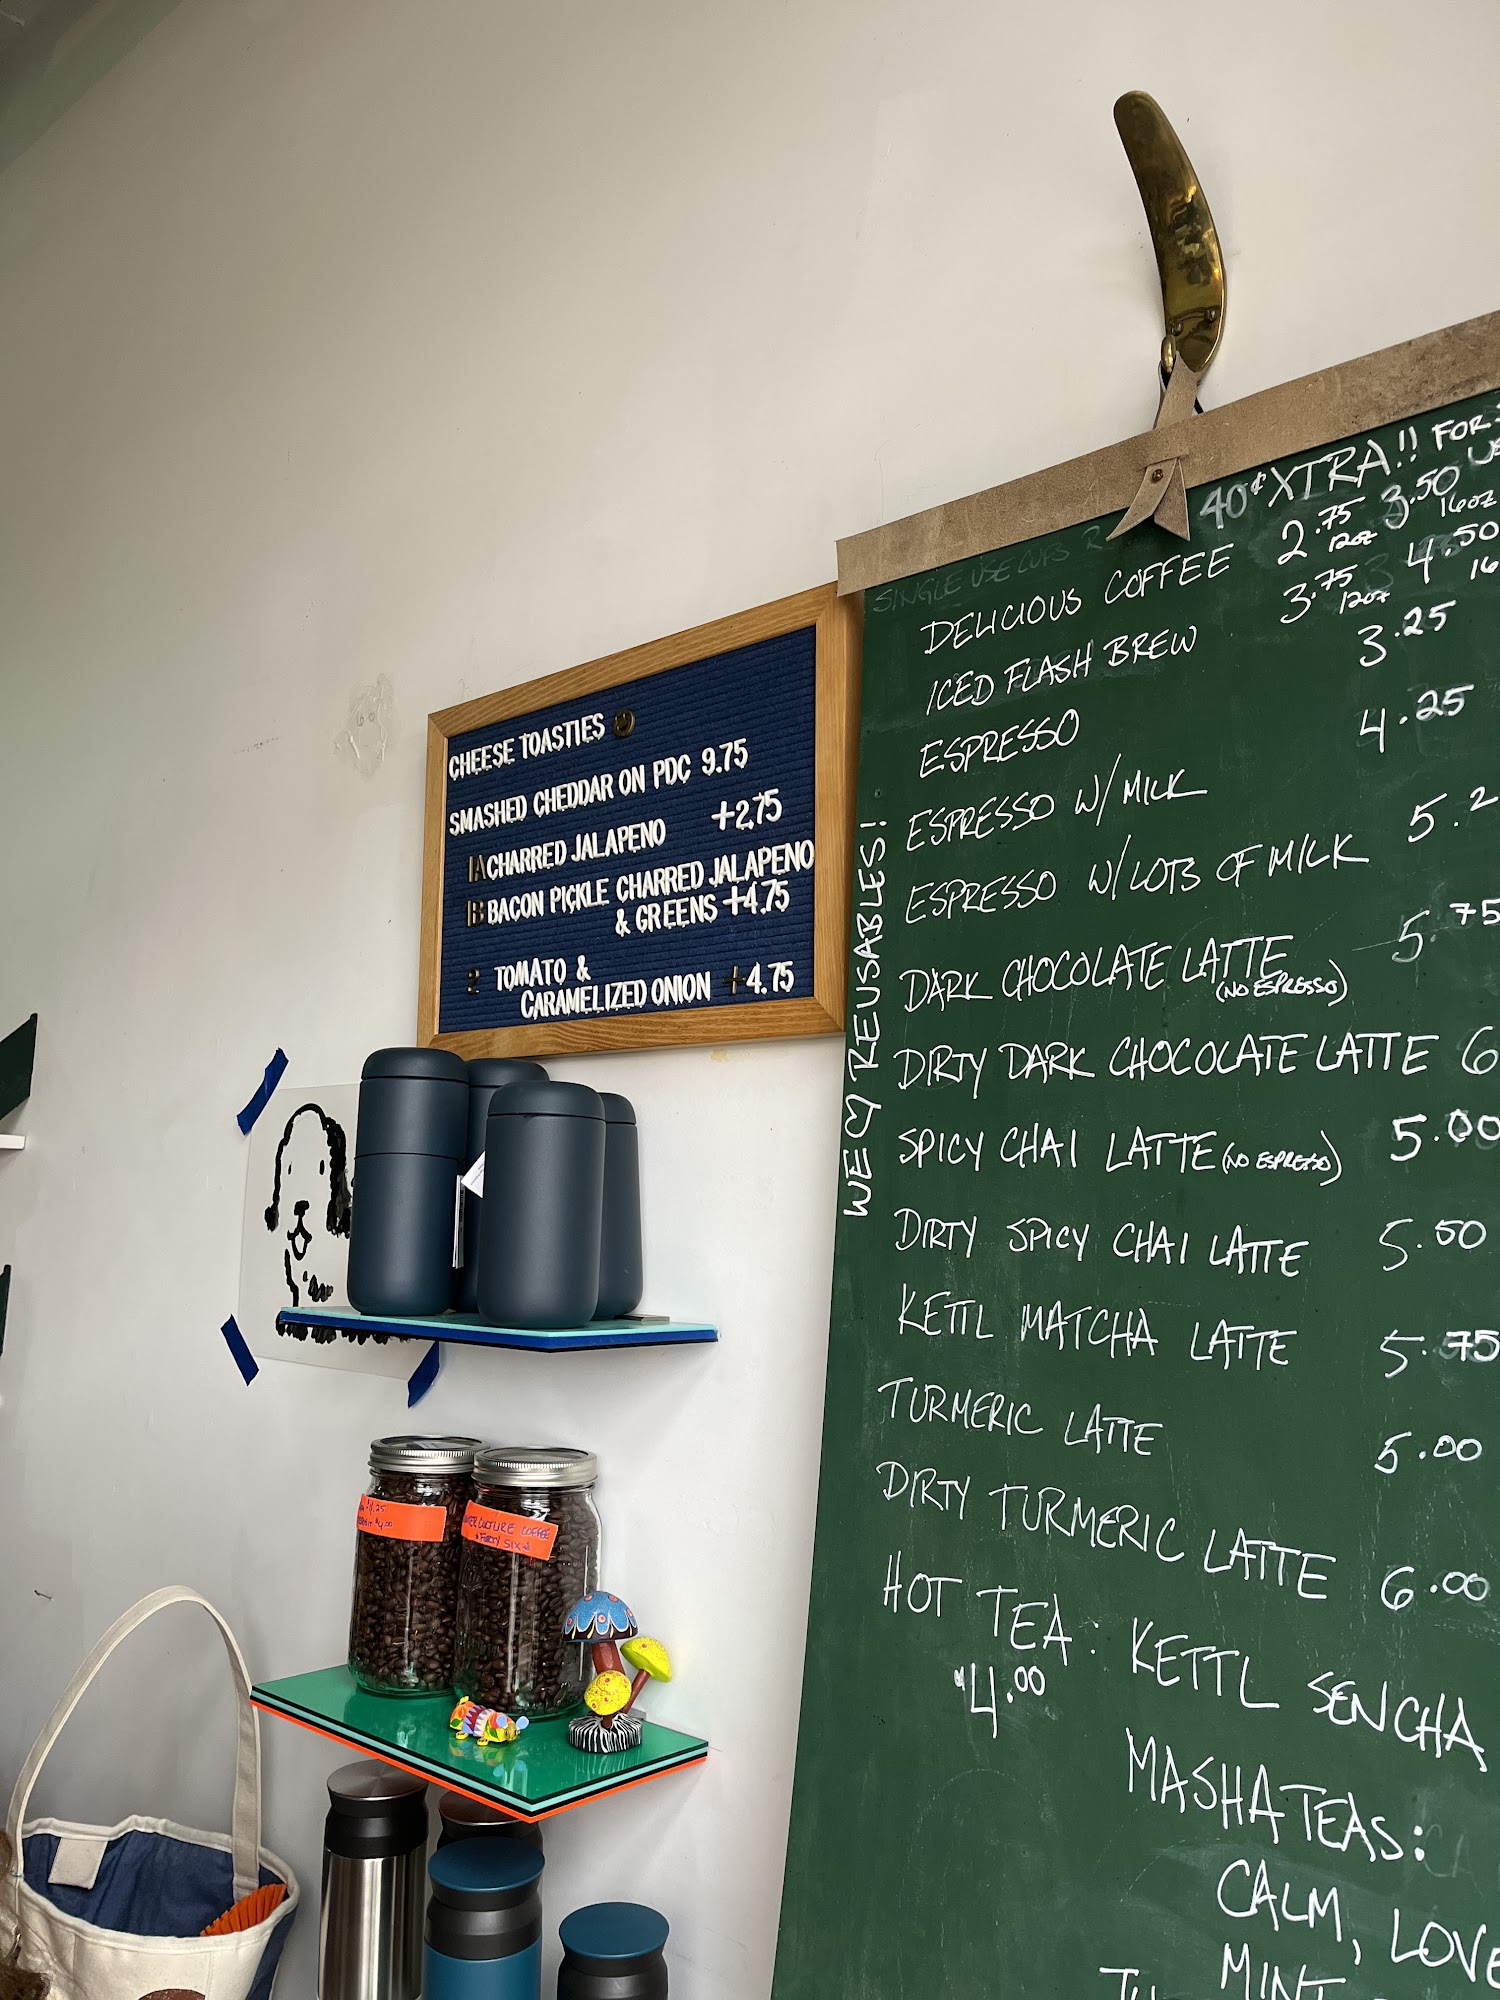 CHEESE TOASTIES
SMASHED CHEDDAR ON PDC 9.75
1A CHARRED JALAPENO +2.75
1B BACON PICKLE CHARRED JALAPENO
& GREENS +4.75
2 TOMATO &
CARAMELIZED ONION +4.75
COFFEE
WE ♡ REUSABLES!
SINGLE USE CUPS
40¢ XTRA!! FOR
DELICIOUS COFFEE 2.75 12oz 3.50 16oz
ICED FLASH BREW 3.75 12oz 4.50 16
ESPRESSO 3.25
ESPRESSO W/ MILK 4.25
ESPRESSO W/ LOTS OF MILK 5.2
DARK CHOCOLATE LATTE (NO ESPRESSO) 5.75
DIRTY DARK CHOCOLATE LATTE 6
SPICY CHAI LATTE (NO ESPRESSO) 5.00
DIRTY SPICY CHAI LATTE 5.50
KETTL MATCHA LATTE 5.75
TURMERIC LATTE 5.00
DIRTY TURMERIC LATTE 6.00
HOT TEA: KETTL SENCHA
$4.00
MASHA TEAS:
CALM, LOVE
MINT